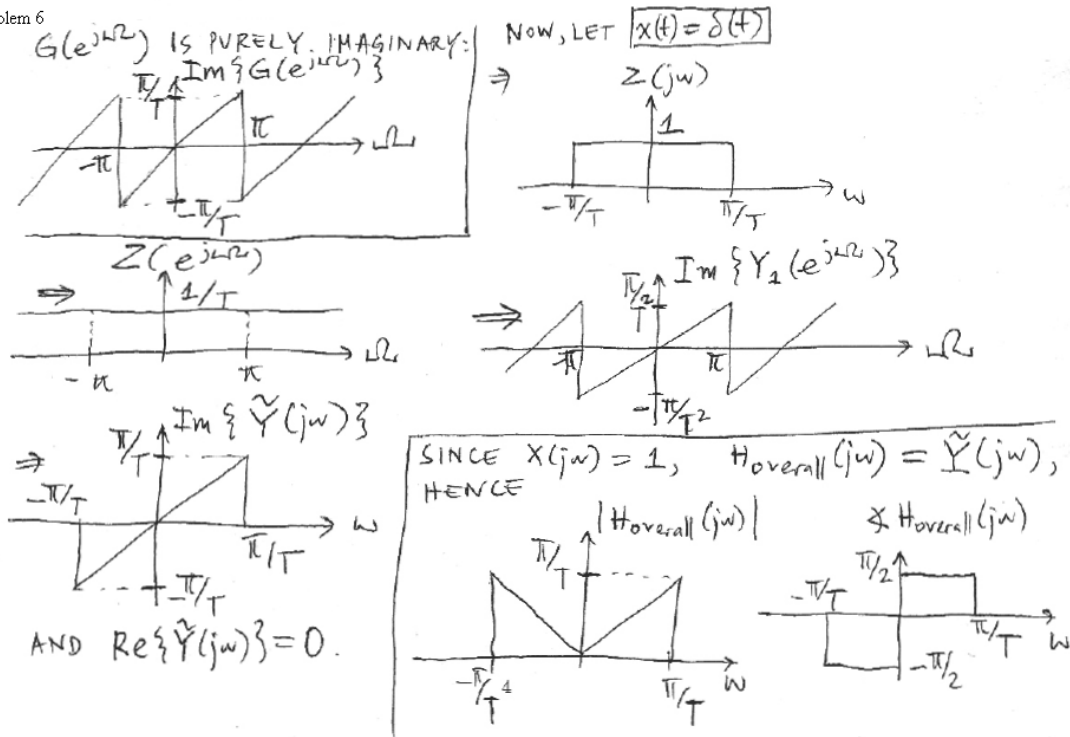 olem 6
G(e^{jΩ}) IS PURELY IMAGINARY:
Im{G(e^{jΩ})}
π/T
π
-π
Ω
-π/T
NOW, LET x(t) = δ(t)
⇒
Z(jw)
1
-π/T
π/T
w
Z(e^{jΩ})
⇒
1/T
-π
π
Ω
⇒
Im{Y₁(e^{jΩ})}
π/T²
-π
π
Ω
-π/T²
⇒
Im{Ỹ(jw)}
π/T
-π/T
w
π/T
-π/T
AND Re{Ỹ(jw)}=0.
SINCE X(jw) = 1, H_overall(jw) = Ỹ(jw),
HENCE
|H_overall(jw)|
π/T
-π/T
π/T
w
4
∡ H_overall(jw)
π/2
-π/T
π/T
w
-π/2